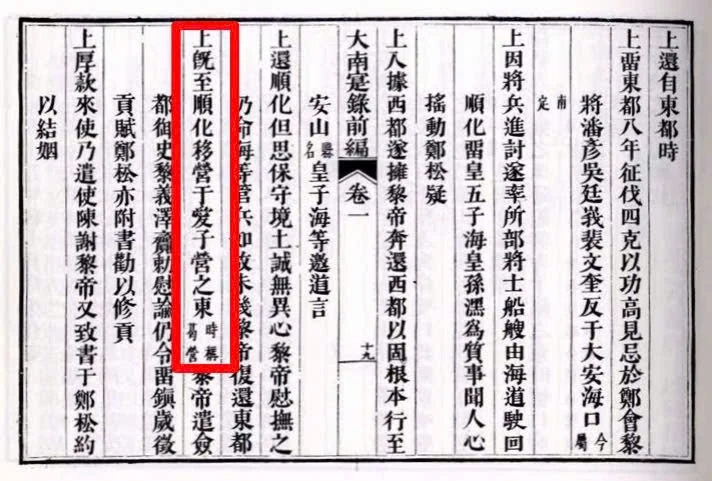 上還自東都時
上畱東都八年征伐四克以功高見忌於鄭會黎
將潘彥吳廷峩裴文奎反于大安海口今屬
南定
上因將兵進討遂率所部將士船艘由海道駛回
順化畱皇五子海皇孫潶為質事聞人心
搖動鄭松疑
上入據西都遂擁黎帝奔還西都以固根本行至
大南寔錄前編 卷一 十九
安山縣名皇子海等邀道言
上還順化但思保守境土誠無異心黎帝慰撫之
仍命海等管兵如故未幾黎帝復還東都
上旣至順化移營于愛子營之東時稱葛營黎帝遣僉
都御史黎義澤齎勅慰諭仍令畱鎭歲徵
貢賦鄭松亦附書勸以修貢
上厚款來使乃遣使陳謝黎帝又致書于鄭松約
以結姻